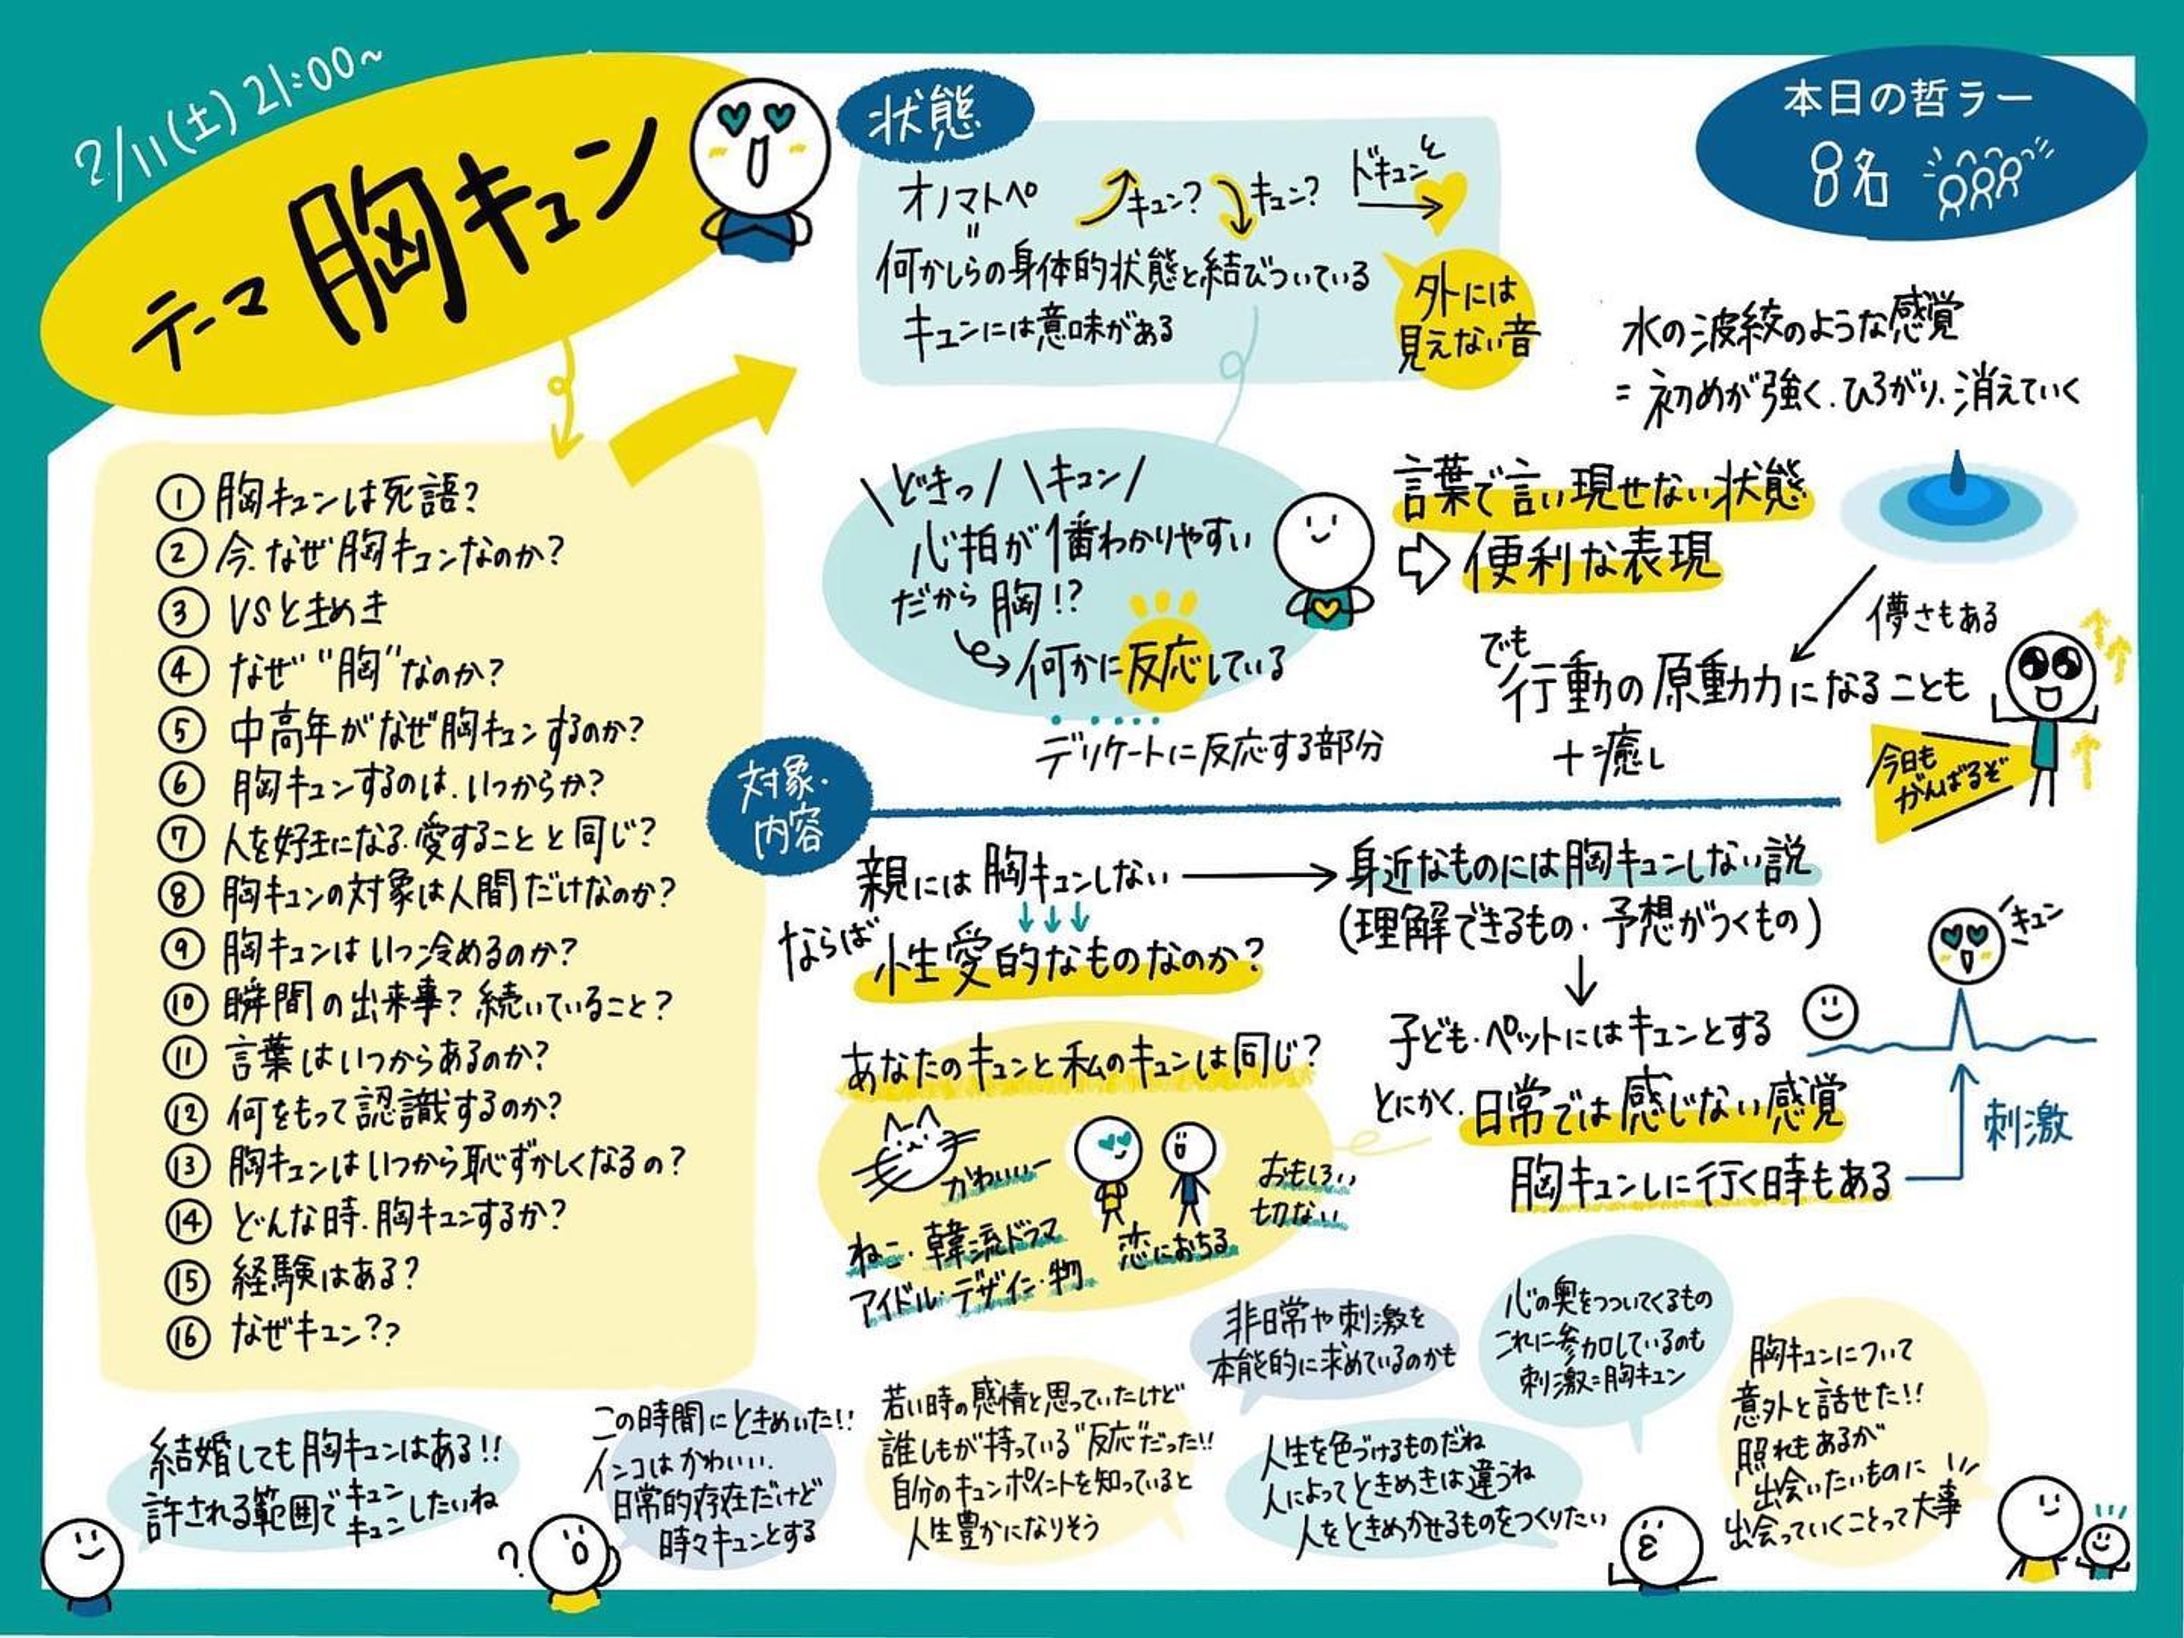 2/11(土)21:00~
テーマ 胸キュン
本日の哲ラー
8名
① 胸キュンは死語?
② 今、なぜ胸キュンなのか?
③ VSときめき
④ なぜ"胸"なのか?
⑤ 中高年がなぜ胸キュンするのか?
⑥ 胸キュンするのは、いつからか?
⑦ 人を好きになる、愛することと同じ?
⑧ 胸キュンの対象は人間だけなのか?
⑨ 胸キュンはいつ冷めるのか?
⑩ 瞬間の出来事?続いていること?
⑪ 言葉はいつからあるのか?
⑫ 何をもって認識するのか?
⑬ 胸キュンはいつから恥ずかしくなるの?
⑭ どんな時、胸キュンするか?
⑮ 経験はある?
⑯ なぜキュン??
状態
オノマトペ
キュン? キュン? ドキュンと
=
何かしらの身体的状態と結びついている
キュンには意味がある
外には
見えない音
\どきっ/ \キュン/
心拍が1番わかりやすい
だから胸!?
何かに反応している
デリケートに反応する部分
水の波紋のような感覚
=初めが強く、ひろがり、消えていく
言葉で言い現せない状態
⇨便利な表現
儚さもある
でも
行動の原動力になることも
+癒し
今日も
がんばるぞ
対象・
内容
親には胸キュンしない
ならば
性愛的なものなのか?
身近なものには胸キュンしない説
(理解できるもの・予想がつくもの)
子ども・ペットにはキュンとする
とにかく、日常では感じない感覚
胸キュンしに行く時もある
キュン
刺激
あなたのキュンと私のキュンは同じ?
かわいいー
ねこ・韓流ドラマ
アイドル・デザイン・物
恋におちる
おもしろい
切ない
結婚しても胸キュンはある!!
許される範囲でキュンキュンしたいね
?
この時間にときめいた!!
インコはかわいい、
日常的存在だけど
時々キュンとする
若い時の感情と思っていたけど
誰しもが持っている"反応"だった!!
自分のキュンポイントを知っていると
人生豊かになりそう
非日常や刺激を
本能的に求めているのかも
人生を色づけるものだね
人によってときめきは違うね
人をときめかせるものをつくりたい
心の奥をつついてくるもの
これに参加しているのも
刺激=胸キュン
胸キュンについて
意外と話せた!!
照れもあるが
出会いたいものに
出会っていくことって大事